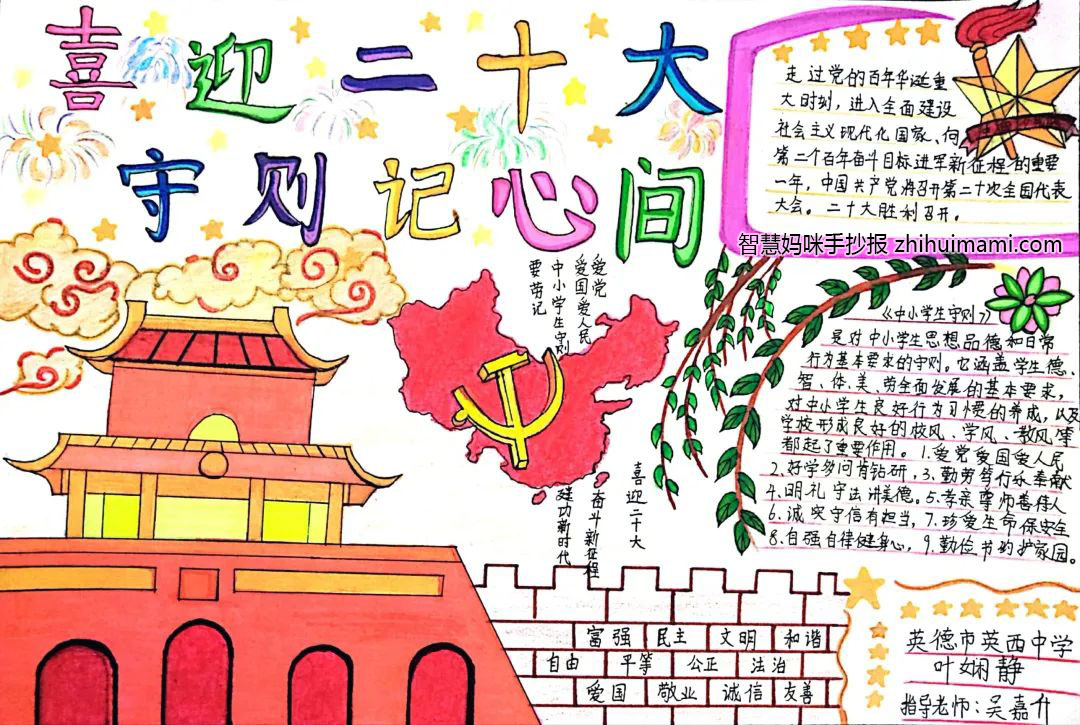 喜迎二十大
守则记心间
走过党的百年华诞重
大时刻，进入全面建设
社会主义现代化国家、向
第二个百年奋斗目标进军新征程的重要
一年，中国共产党将召开第二十次全国代表
大会。二十大胜利召开。
智慧妈咪手抄报 zhihuimami.com
爱党
爱国爱人民
中小学生守则
要劳记
《中小学生守则》
是对中小学生思想品德和日常
行为基本要求的守则。它涵盖学生德、
智、体、美、劳全面发展的基本要求，
对中小学生良好行为习惯的养成，以及
学校形成良好的校风、学风、教风等
都起了重要作用。1.爱党爱国爱人民
2.好学多问肯钻研，3.勤劳笃行乐奉献
4.明礼守法讲美德。5.孝亲尊师善待人
6.诚实守信有担当，7.珍爱生命保安全
8.自强自律健身心，9.勤俭节约护家园。
喜迎二十大
奋斗新征程
建功新时代
富强 民主 文明 和谐
自由 平等 公正 法治
爱国 敬业 诚信 友善
英德市英西中学
叶娴静
指导老师：吴嘉升